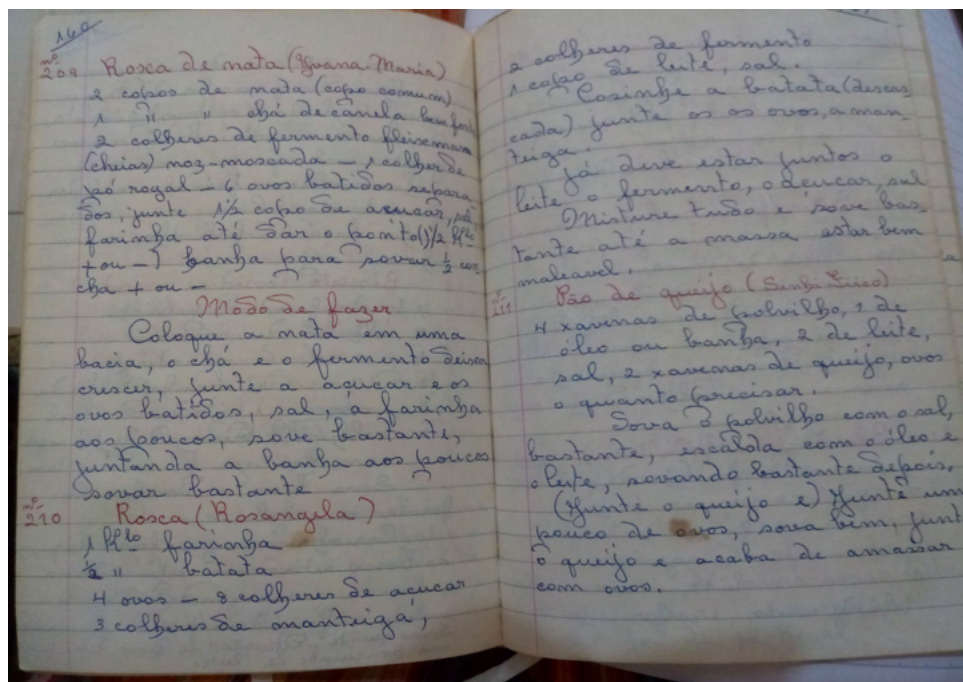 160
nº
209 Rosca de nata (Yvana Maria)
2 copos de nata (copo comum)
1 " " chá de canela bem forte
2 colheres de fermento fleiscmam
(cheias) noz-moscada – 1 colher de
pó royal – 6 ovos batidos separa
dos, junte 1/2 copo de acucar, sal
farinha até dar o ponto (1 1/2 Klo
+ ou –) banha para sovar 1/2 con
cha + ou –
Môdo de fazer
Coloque a nata em uma
bacia, o chá e o fermento deixa
crescer, junte a açucar e os
ovos batidos, sal, a farinha
aos poucos, sove bastante,
juntanda a banha aos poucos
sovar bastante
nº
210 Rosca (Rosangela)
1 Klo farinha
1/2 " batata
4 ovos – 8 colheres de acucar
3 colheres de manteiga,
2 colheres de fermento
1 copo de leite, sal.
Cosinhe a batata (descas
cada) junte os os ovos, a man
teiga.
Já deve estar juntos o
leite o fermento, o açucar, sal
Misture tudo e sove bas
tante até a massa estar bem
maleavel.
nº
211 Pão de queijo (Sinhá)
4 xavenas de polvilho, 1 de
óleo ou banha, 2 de leite,
sal, 2 xavenas de queijo, ovos
o quanto precisar.
Sova o polvilho com o sal,
bastante, escalda com o óleo e
o leite, sovando bastante depois,
(Junte o queijo e) Junte um
pouco de ovos, sova bem, junt
o queijo e acaba de amassar
com ovos.